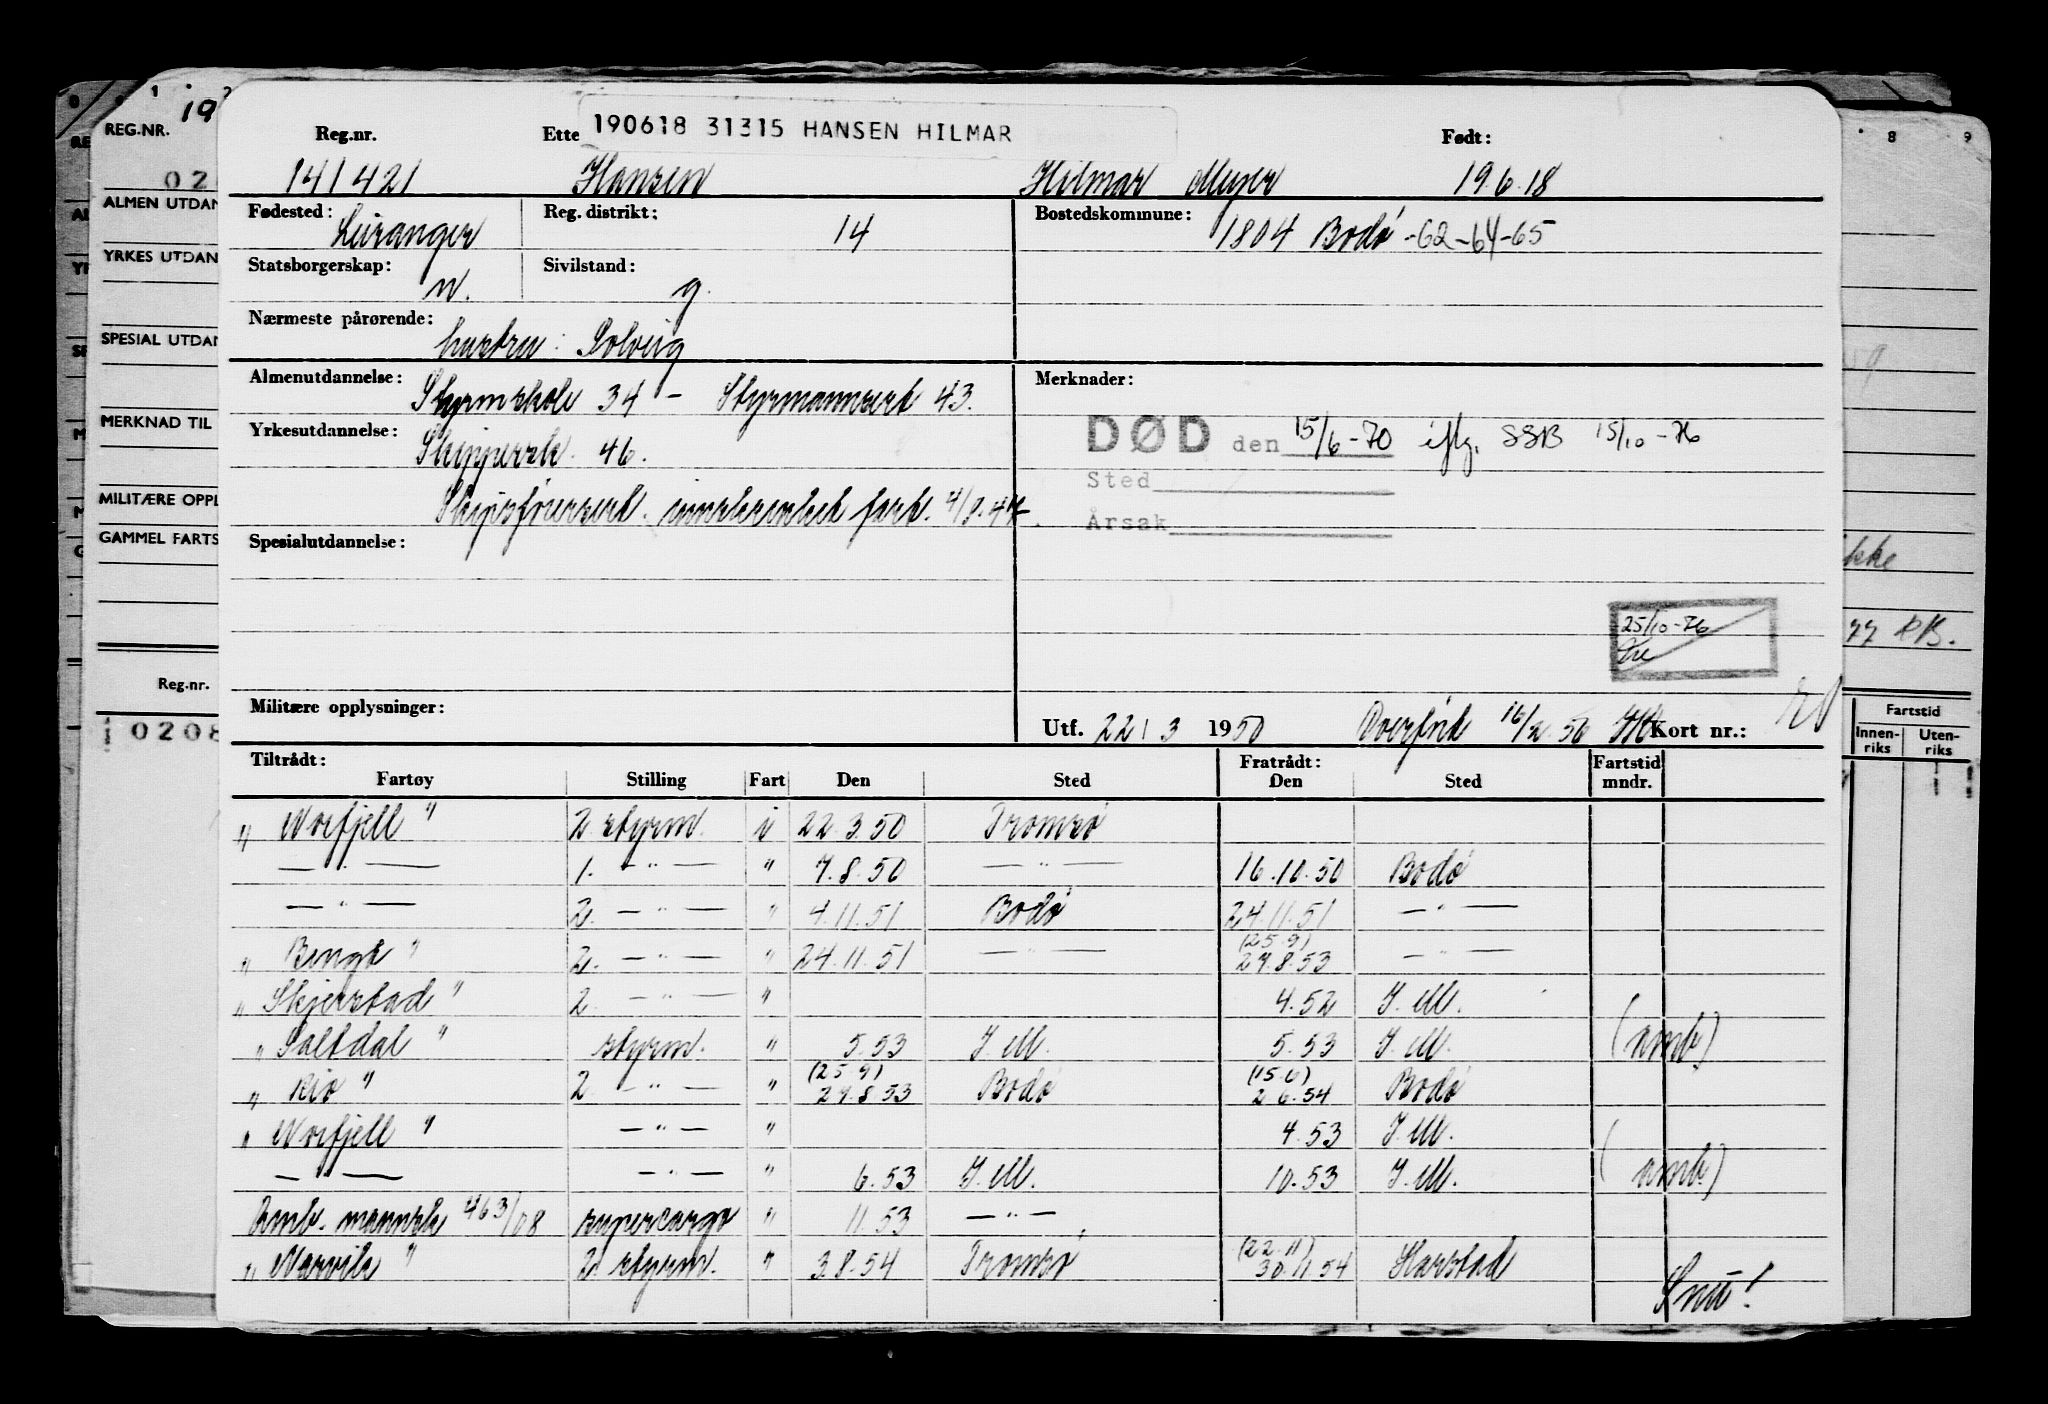 19
REG.NR.
02
ALMEN UTDAN
YRKES UTDAN
SPESIAL UTDAN
MERKNAD TIL
MILITÆRE OPPL
GAMMEL FARTS
Reg.nr.
0208
190618 31315 HANSEN HILMAR
Reg.nr. Ette Født:
141421 Hansen Hilmar Meyer 19.6.18
Fødested: Leiranger Reg. distrikt: 14 Bostedskommune: 1804 Bodø -62-64-65
Statsborgerskap: n. Sivilstand: g.
Nærmeste pårørende:
hustru: Solveig
Almenutdannelse: Styrmskole 34 – Styrmannsert 43. Merknader:
Yrkesutdannelse: Skippersk. 46. DØD den 15/6-70 iflg. SSB 15/10-76
Sted
Skipsførersert. innskrenket fart.
Årsak
Spesialutdannelse:
25/10-76
Militære opplysninger:
Utf. 22/3 1950 Overført 16/2 56 Kort nr.:
Tiltrådt: Fratrådt: Fartstid
Fartøy Stilling Fart Den Sted Den Sted mndr.
" Norfjell " 2. styrm. i 22.3.50 Tromsø
— " — 1. — " — " 7.8.50 — " — 16.10.50 Bodø
— " — 2. — " — " 4.11.51 Bodø 24.11.51 — " —
(25.9)
" Bengt " 2. — " — " 24.11.51 — " — 27.8.53 — " —
" Skjerstad " 2. — " — " 4.52 I.M.
" Saltdal " styrm. " 5.53 I.M. 5.53 I.M. (amb)
(25.9) (15.6)
" Rio " 2. — " — " 27.8.53 Bodø 2.6.54 Bodø
" Norfjell " — " — " 4.53 I.M.
— " — — " — " 6.53 I.M. 10.53 I.M. (amb)
Amb. mannsk 463/08 supercargo " 11.53 — " —
(22.11)
" Narvik " 2. styrm. " 3.8.54 Tromsø 30.11.54 Harstad
Snu!
8 9
ikke
77 RB.
Fartstid
Innen-riks Uten-riks